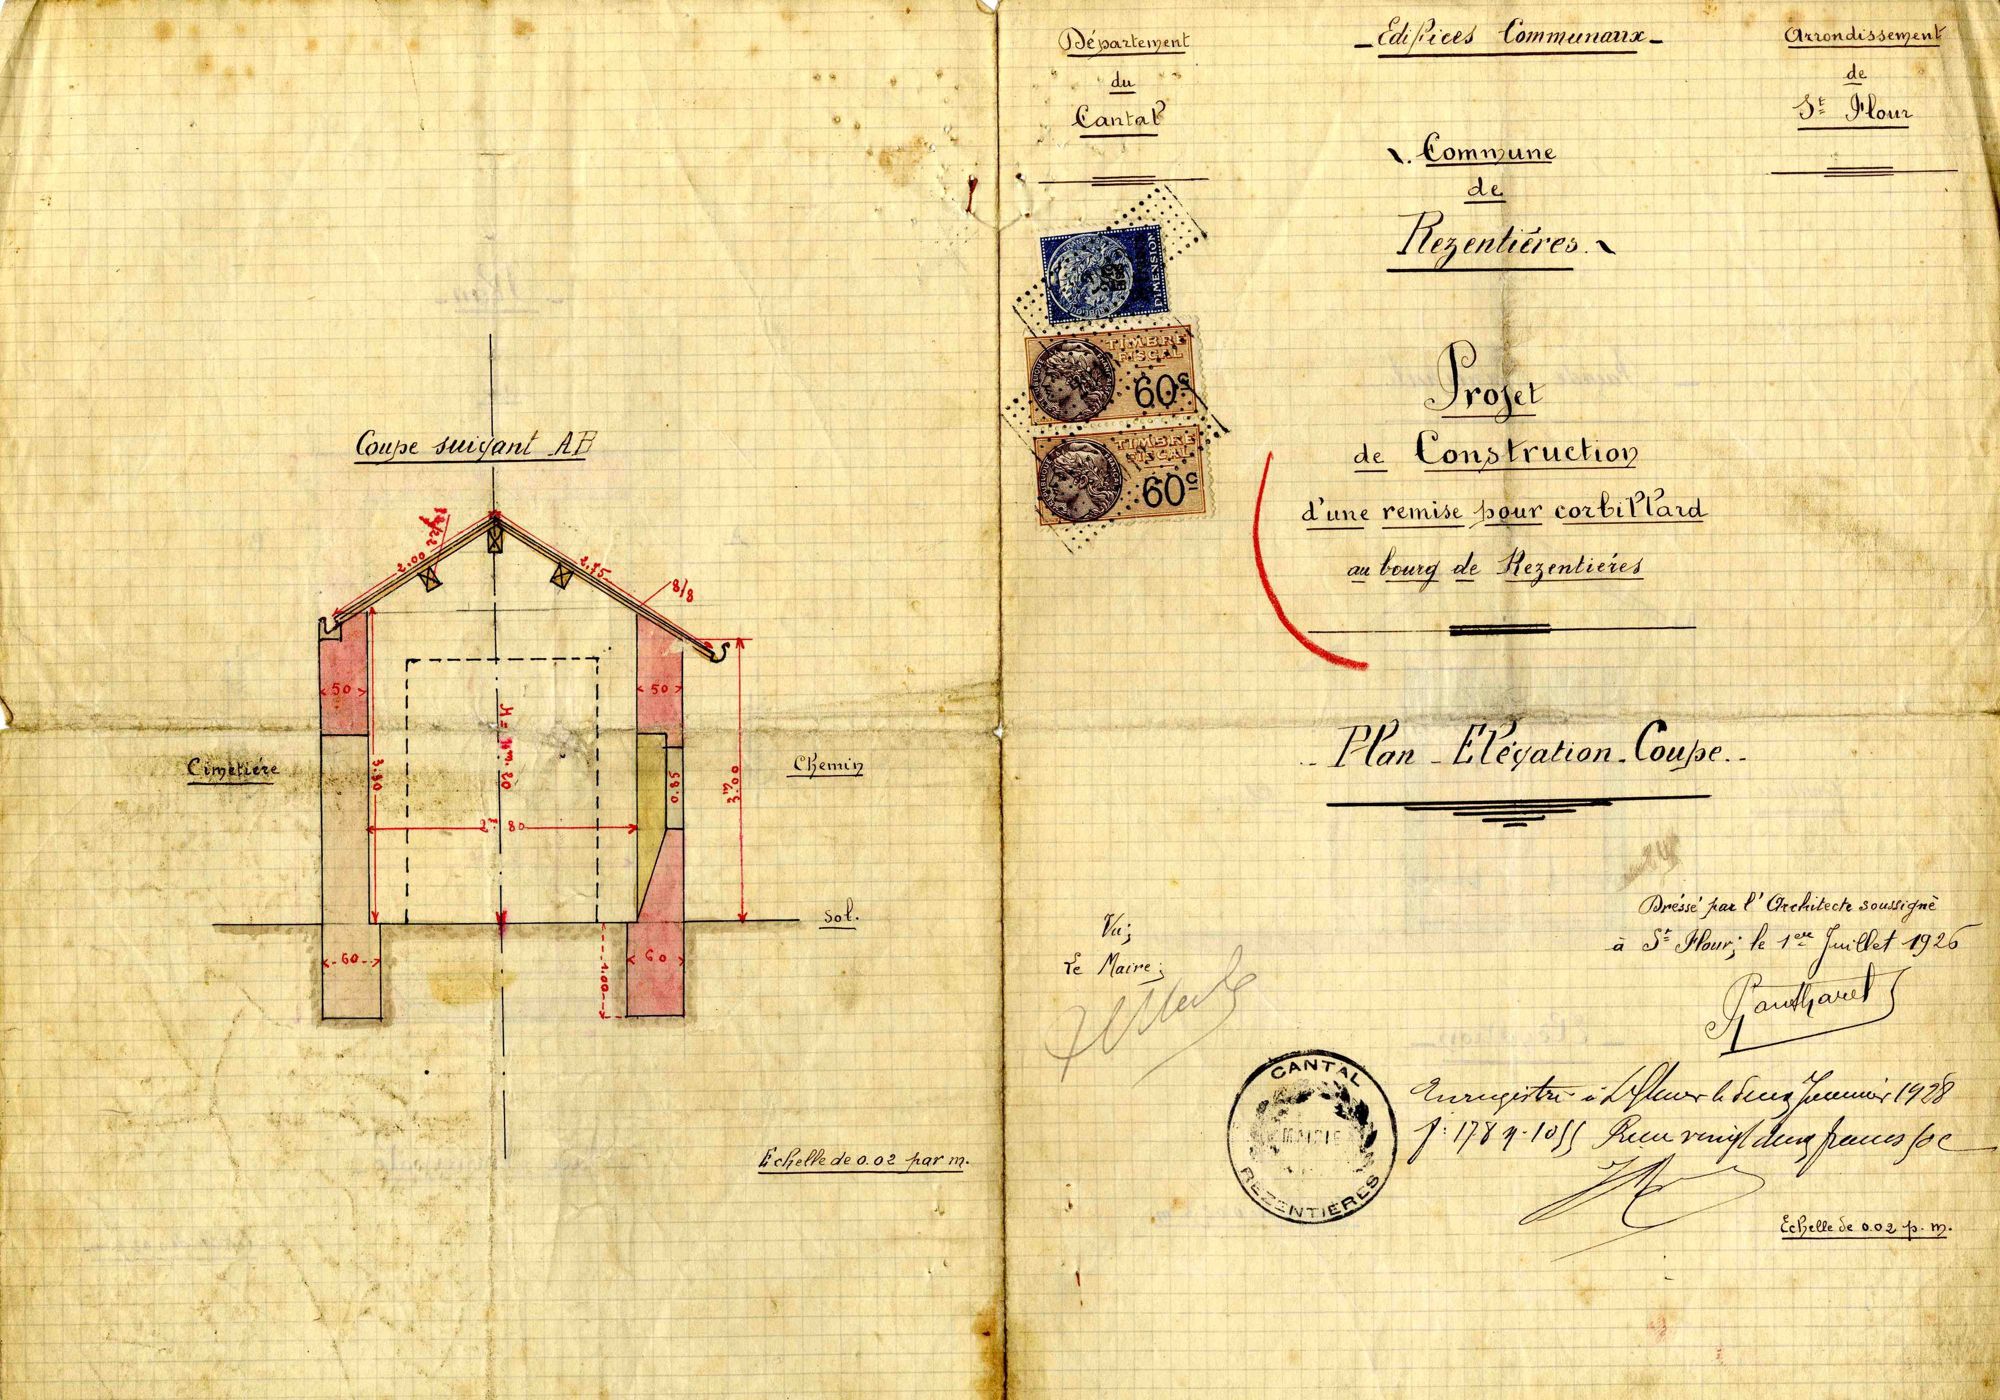 Coupe suivant AB
2.00
2.75
8/8
50
50
3.30
H = 4m.20
0.85
3m00
2m80
Cimetière
Chemin
Sol.
60
60
1.00
Echelle de 0.02 par m.
Département
du
Cantal
Edifices Communaux
Arrondissement
de
St Flour
Commune
de
Rezentières
DIMENSION
TIMBRE
FISCAL
60c
TIMBRE
FISCAL
60c
Projet
de Construction
d'une remise pour corbillard
au bourg de Rezentières
Plan - Elévation - Coupe
Dressé par l'Architecte soussigné
à St Flour; le 1ere Juillet 1926
Vu;
Le Maire;
CANTAL
MAIRIE
REZENTIÈRES
Enregistré à St Flour le deux Janvier 1928
f: 178 n. 1055 Reçu vingt deux francs 50c
Echelle de 0.02 p. m.